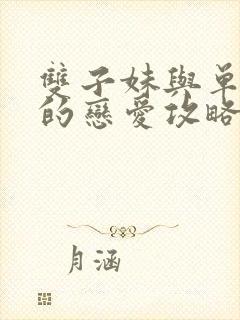 雙子妹與單
的戀愛攻略
月涵